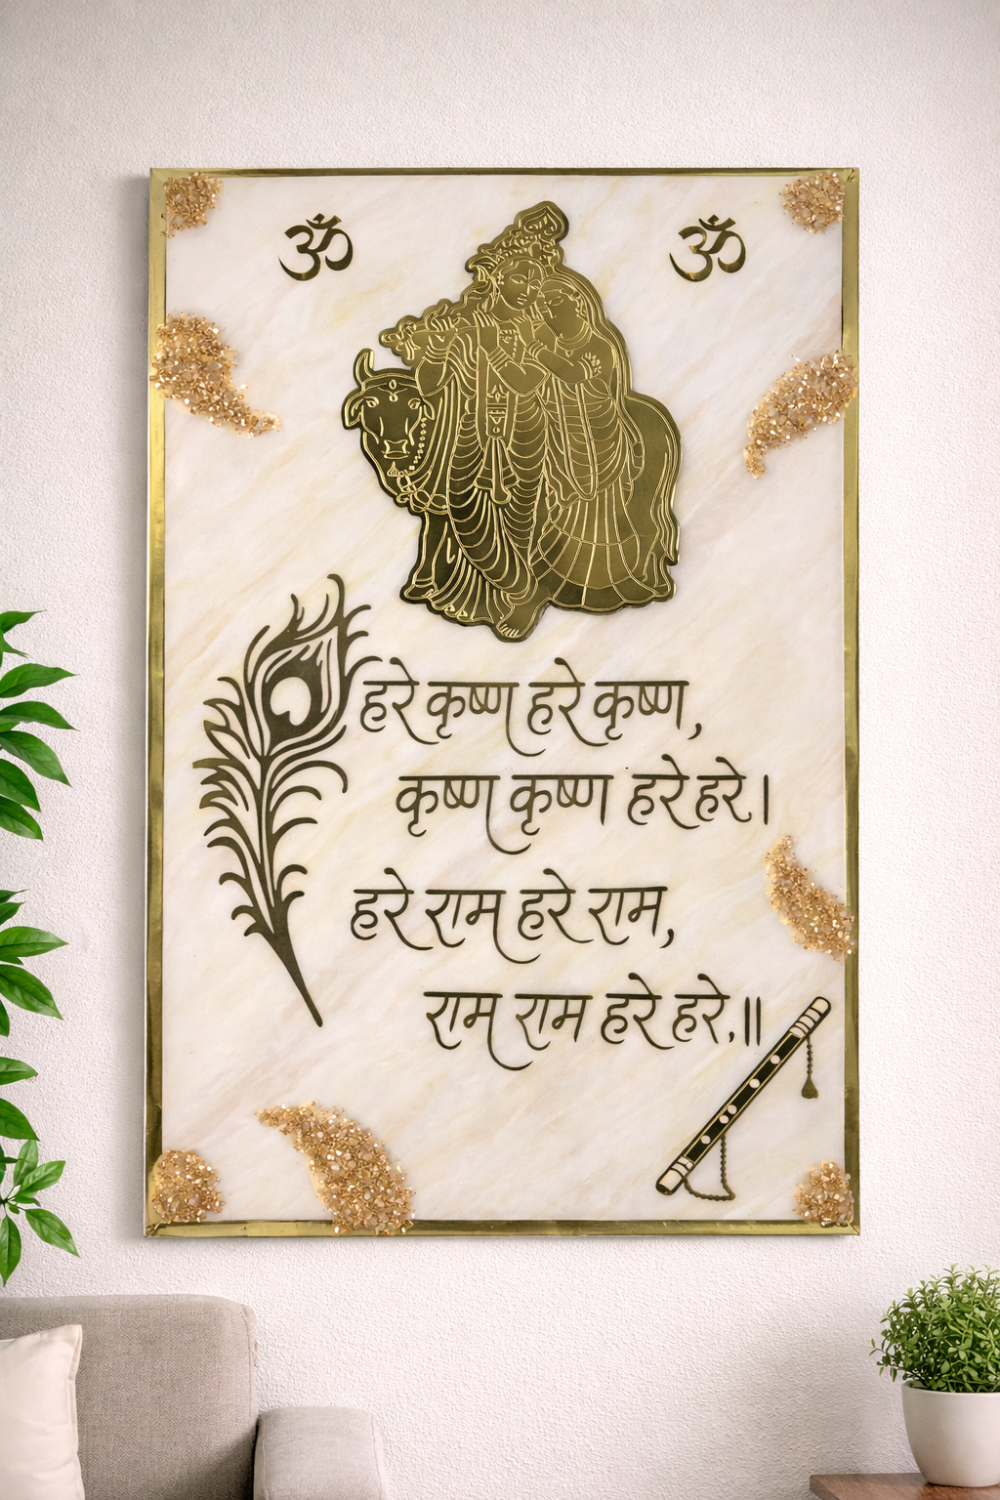 ॐ ॐ
हरे कृष्ण हरे कृष्ण,
कृष्ण कृष्ण हरे हरे।
हरे राम हरे राम,
राम राम हरे हरे.॥